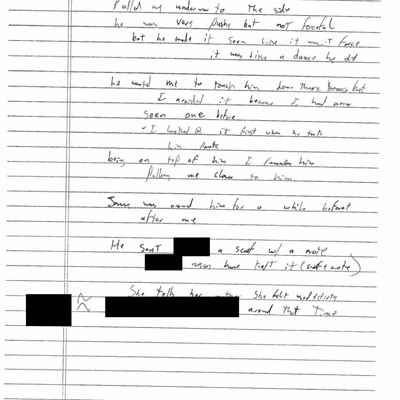 Pulled my underwear to the side
he was very pushy but not forceful
but he made it seem like it wasn't force
it was like a dance he did
he wanted me to touch him down there
I avoided it because I had never
seen one before
- I looked @ it first when he took
his pants
being on top of him I remember him
pulling me closer to him
was around him for a while before +
after me
He sent a scarf w/ a note
may have kept it (scarf + note)
She she felt
around that time